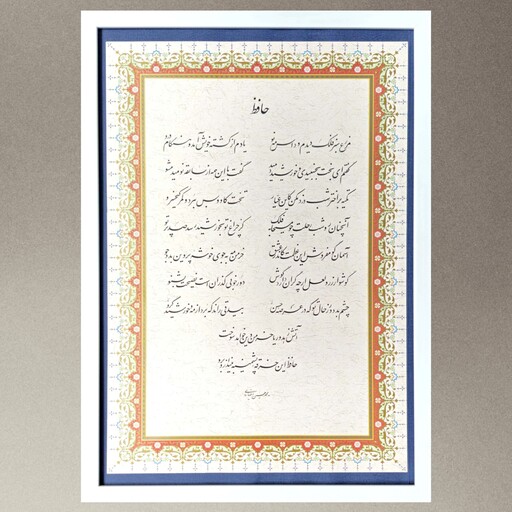 حافظ
مزرع سبز فلک دیدم و داس مه نو یادم از کشته خویش آمد و هنگام درو
گفتم ای بخت بخفتیدی و خورشید دمید گفت با این همه از سابقه نومید مشو
تکیه بر اختر شب دزد مکن کاین عیار تخت کاووس ببرد و کمر کیخسرو
آنچنان رو شب رحلت چو مسیحا به فلک کز چراغ تو به خورشید رسد صد پرتو
آسمان گو مفروش این عظمت کاندر عشق خرمن مه به جوی خوشه پروین به دو جو
گوشوار زر و لعل ارچه گران دارد گوش دور خوبی گذران است نصیحت بشنو
چشم بد دور ز خال تو که در عرصه حسن بیدقی راند که برد از مه و خورشید گرو
آتش زهد و ریا خرمن دین خواهد سوخت
حافظ این خرقه پشمینه بینداز و برو